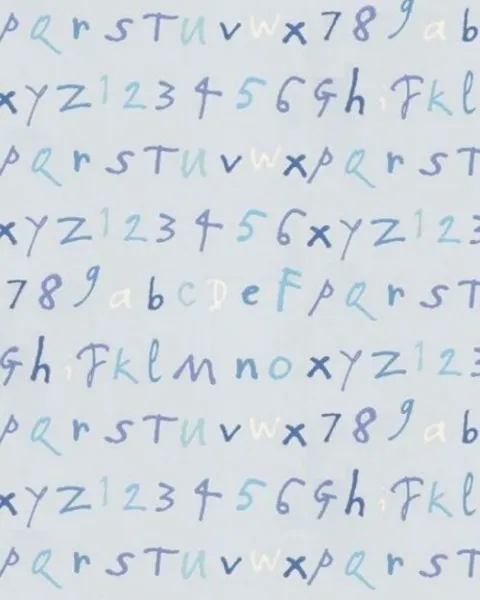 p Q r s T U v w x 7 8 9 a b
x y Z 1 2 3 4 5 6 G h i J k l
p Q r s T U v w x p Q r s T
x y Z 1 2 3 4 5 6 x y Z 1 2 3
7 8 9 a b c D e F p Q r s T
G h i J k l M n o x y Z 1 2 3
p Q r s T U v w x 7 8 9 a b
x y Z 1 2 3 4 5 6 G h i J k l
p Q r s T U v w x p Q r s T